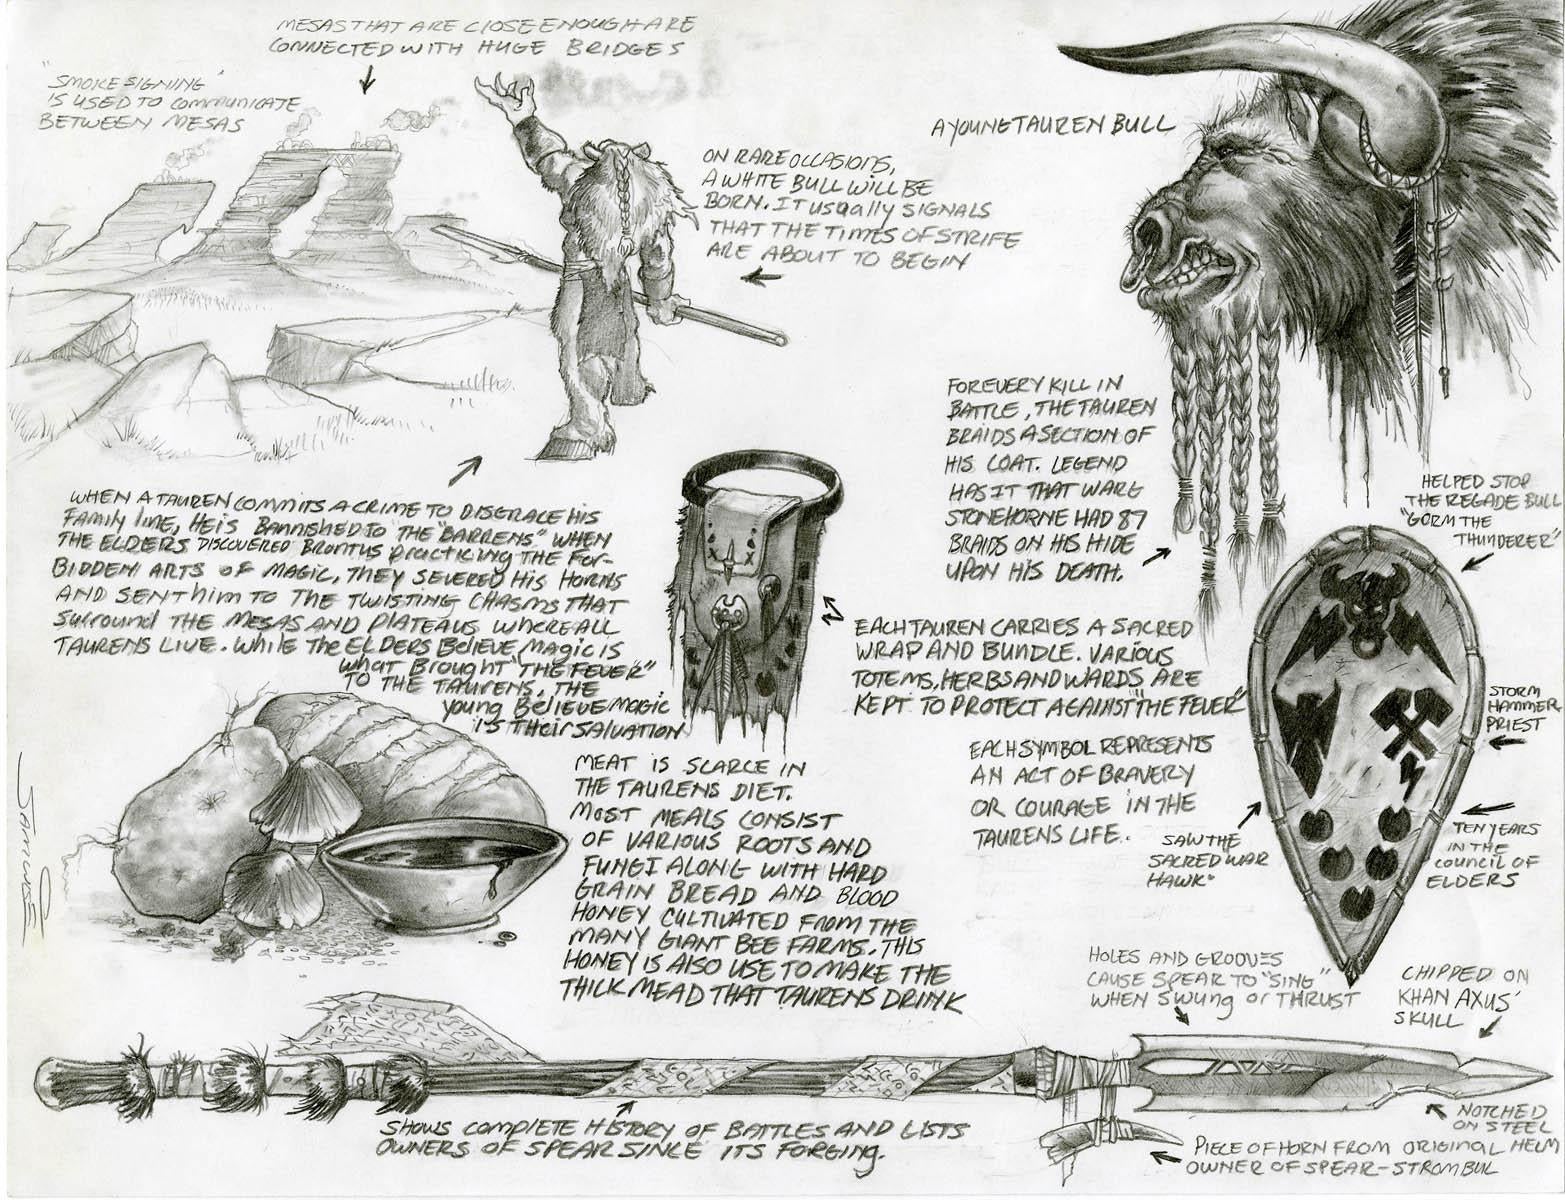 MESAS THAT ARE CLOSE ENOUGH ARE
CONNECTED WITH HUGE BRIDGES
"SMOKE SIGNING"
IS USED TO COMMUNICATE
BETWEEN MESAS
ON RARE OCCASIONS,
A WHITE BULL WILL BE
BORN. IT USUALLY SIGNALS
THAT THE TIMES OF STRIFE
ARE ABOUT TO BEGIN
A YOUNG TAUREN BULL
FOR EVERY KILL IN
BATTLE, THE TAUREN
BRAIDS A SECTION OF
HIS COAT. LEGEND
HAS IT THAT WARG
STONEHORNE HAD 89
BRAIDS ON HIS HIDE
UPON HIS DEATH.
WHEN A TAUREN COMMITS A CRIME TO DISGRACE HIS
FAMILY LINE, HE IS BANNISHED TO THE "BARRENS" WHEN
THE ELDERS DISCOVERED BRONTUS PRACTICING THE FOR-
BIDDEN ARTS OF MAGIC, THEY SEVERED HIS HORNS
AND SENT HIM TO THE TWISTING CHASMS THAT
SURROUND THE MESAS AND PLATEAUS WHERE ALL
TAURENS LIVE. WHILE THE ELDERS BELIEVE MAGIC IS
WHAT BROUGHT "THE FEVER"
TO THE TAURENS, THE
YOUNG BELIEVE MAGIC
IS THEIR SALVATION
EACH TAUREN CARRIES A SACRED
WRAP AND BUNDLE. VARIOUS
TOTEMS, HERBS AND WARDS ARE
KEPT TO PROTECT AGAINST "THE FEVER"
HELPED STOP
THE REGADE BULL
"GORM THE
THUNDERER"
STORM
HAMMER
PRIEST
EACH SYMBOL REPRESENTS
AN ACT OF BRAVERY
OR COURAGE IN THE
TAURENS LIFE.
SAW THE
SACRED WAR
HAWK"
TEN YEARS
IN THE
COUNCIL OF
ELDERS
MEAT IS SCARCE IN
THE TAURENS DIET.
MOST MEALS CONSIST
OF VARIOUS ROOTS AND
FUNGI ALONG WITH HARD
GRAIN BREAD AND BLOOD
HONEY CULTIVATED FROM THE
MANY GIANT BEE FARMS. THIS
HONEY IS ALSO USE TO MAKE THE
THICK MEAD THAT TAURENS DRINK
SAMWISE
HOLES AND GROOVES
CAUSE SPEAR TO "SING"
WHEN SWUNG OR THRUST
CHIPPED ON
KHAN AXUS'
SKULL
SHOWS COMPLETE HISTORY OF BATTLES AND LISTS
OWNERS OF SPEAR SINCE ITS FORGING.
NOTCHED
ON STEEL
PIECE OF HORN FROM ORIGINAL HELM
OWNER OF SPEAR-STROMBUL